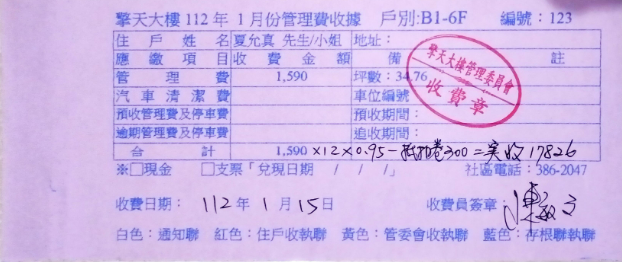 擎天大樓 112 年 1 月份管理費收據 戶別:B1-6F 編號：123
住戶姓名 夏允真 先生/小姐 地址：
應繳項目 收費金額 備註
管理費 1,590 坪數：34.76
汽車清潔費 車位編號
預收管理費及停車費 預收期間：
逾期管理費及停車費 追收期間：
合計 1,590 ×12×0.95－抵扣卷300＝実收17826
擎天大樓管理委員會
收費章
※□現金 □支票「兌現日期 / / /」 社區電話：386-2047
收費日期： 112 年 1 月 15 日 收費員簽章：陳
白色：通知聯 紅色：住戶收執聯 黃色：管委會收執聯 藍色：存根聯執聯